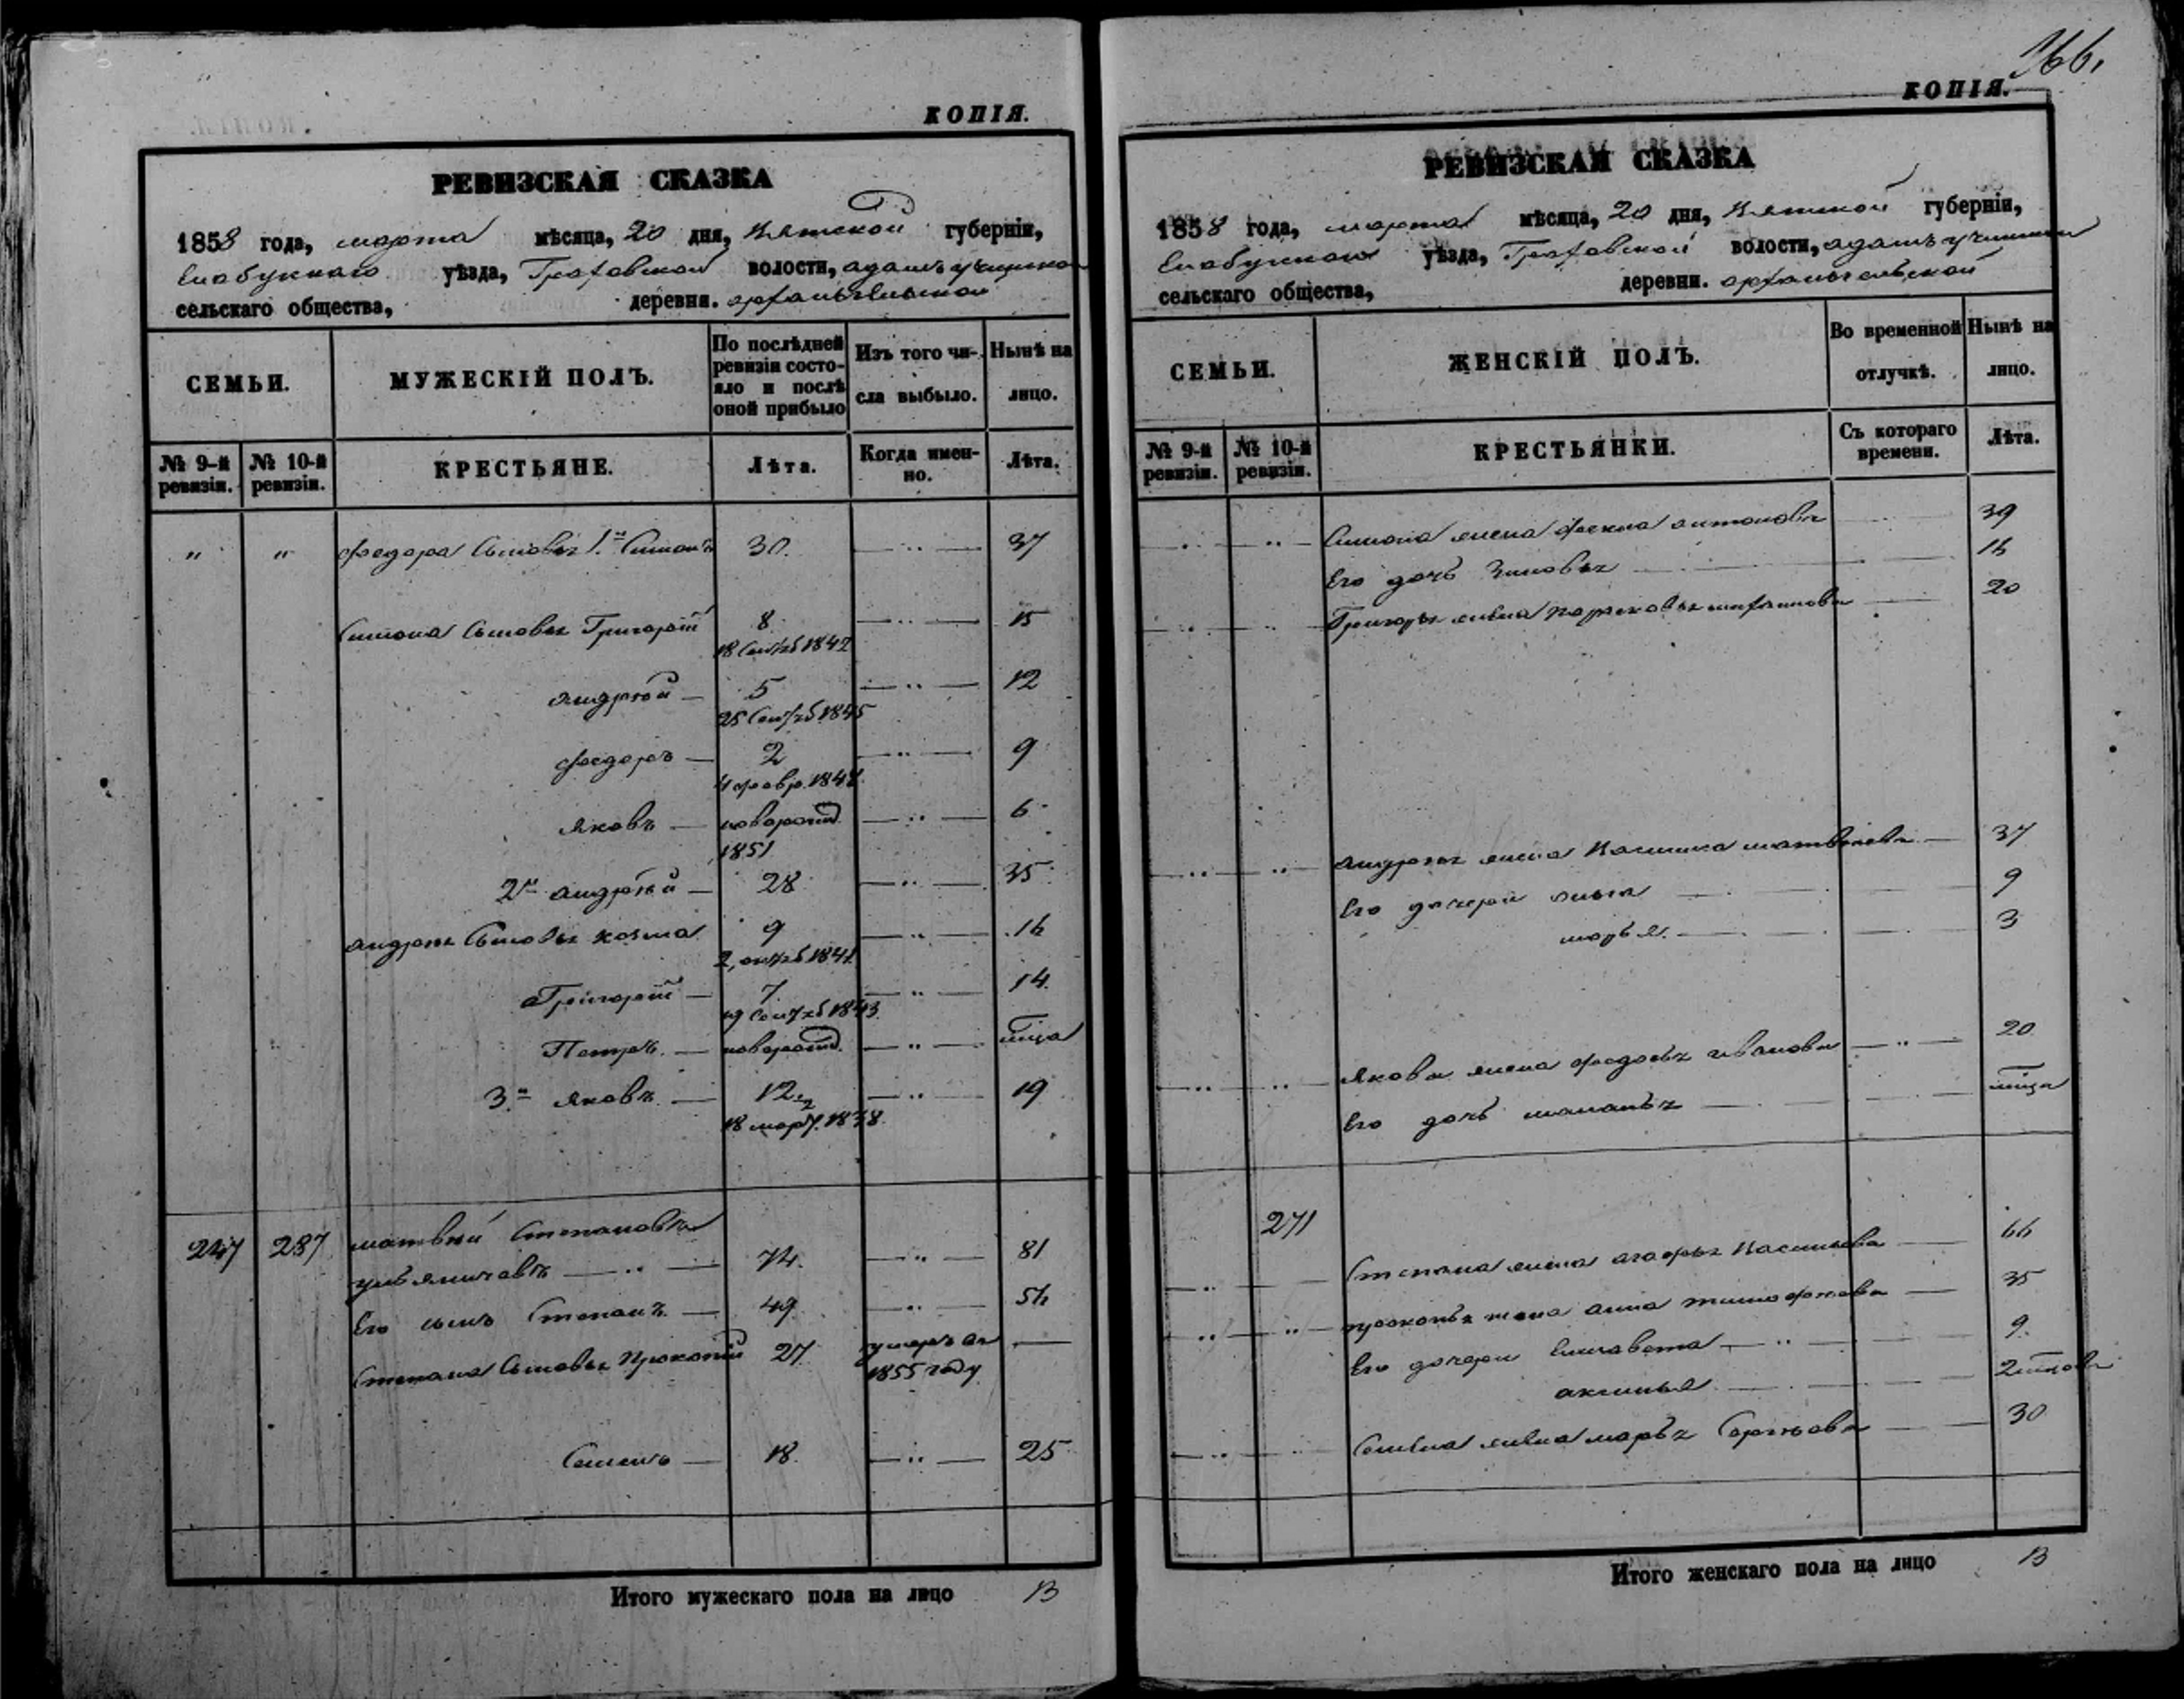 КОПІЯ.
РЕВИЗСКАЯ СКАЗКА
1858 года, марта мѣсяца, 20 дня, Вятской губерніи,
Елабужскаго уѣзда, Граховской волости,
сельскаго общества, деревни. Архангельской
СЕМЬИ.
МУЖЕСКІЙ ПОЛЪ.
По послѣдней ревизіи состояло и послѣ оной прибыло
Изъ того числа выбыло.
Нынѣ на лицо.
№ 9-й ревизіи.
№ 10-й ревизіи.
КРЕСТЬЯНЕ.
Лѣта.
Когда именно.
Лѣта.
" " Федора Сыновья 1.й Симонъ 30. — " — 37
Симона Сыновья Григорій 8 — " — 15
18 1842
Андрей — 5 — " — 12
25 1845
Федоръ — 2 — " — 9
4 февр. 1848
Яковъ — новорожд. — " — 6
1851
2й Андрей — 28 — " — 35
Андрея Сыновья Козма 9 — " — 16
2, 1841
Григорій — 7 — " — 14.
1843
Петръ. — новорожд. — " —
3.й Яковъ. — 12 1/2 — " — 19
18 март. 1838
247 287 Матвей Степановъ
— " — 74. — " — 81
Его сынъ Степанъ. — 49. — " — 56
Степана Сыновья Прокопій 27. умеръ въ —
1855 году
Семенъ — 18. — " — 25
Итого мужескаго пола на лицо 13
366.
КОПІЯ.
РЕВИЗСКАЯ СКАЗКА
1858 года, марта мѣсяца, 20 дня, Вятской губерніи,
уѣзда, Граховской волости,
сельскаго общества, деревни. Архангельской
СЕМЬИ.
ЖЕНСКІЙ ПОЛЪ.
Во временной отлучкѣ.
Нынѣ на лицо.
№ 9-й ревизіи.
№ 10-й ревизіи.
КРЕСТЬЯНКИ.
Съ котораго времени.
Лѣта.
Симона жена Фекла Антонова 39
Его дочь Зиновья 16
Григорья жена Парасковья 20
Андрея жена Матвѣева — 37
Его дочери 9
Марья. 3
Якова жена Федосья Иванова — " — 20
Его дочь Маланья
271
Степана жена Агафья Васильева — 66
Прокопья жена Анна Тимофеева — 35
Его дочери Елизавета — " — 9.
Аксинья
Семена жена Марья Сергѣева 30
Итого женскаго пола на лицо 13